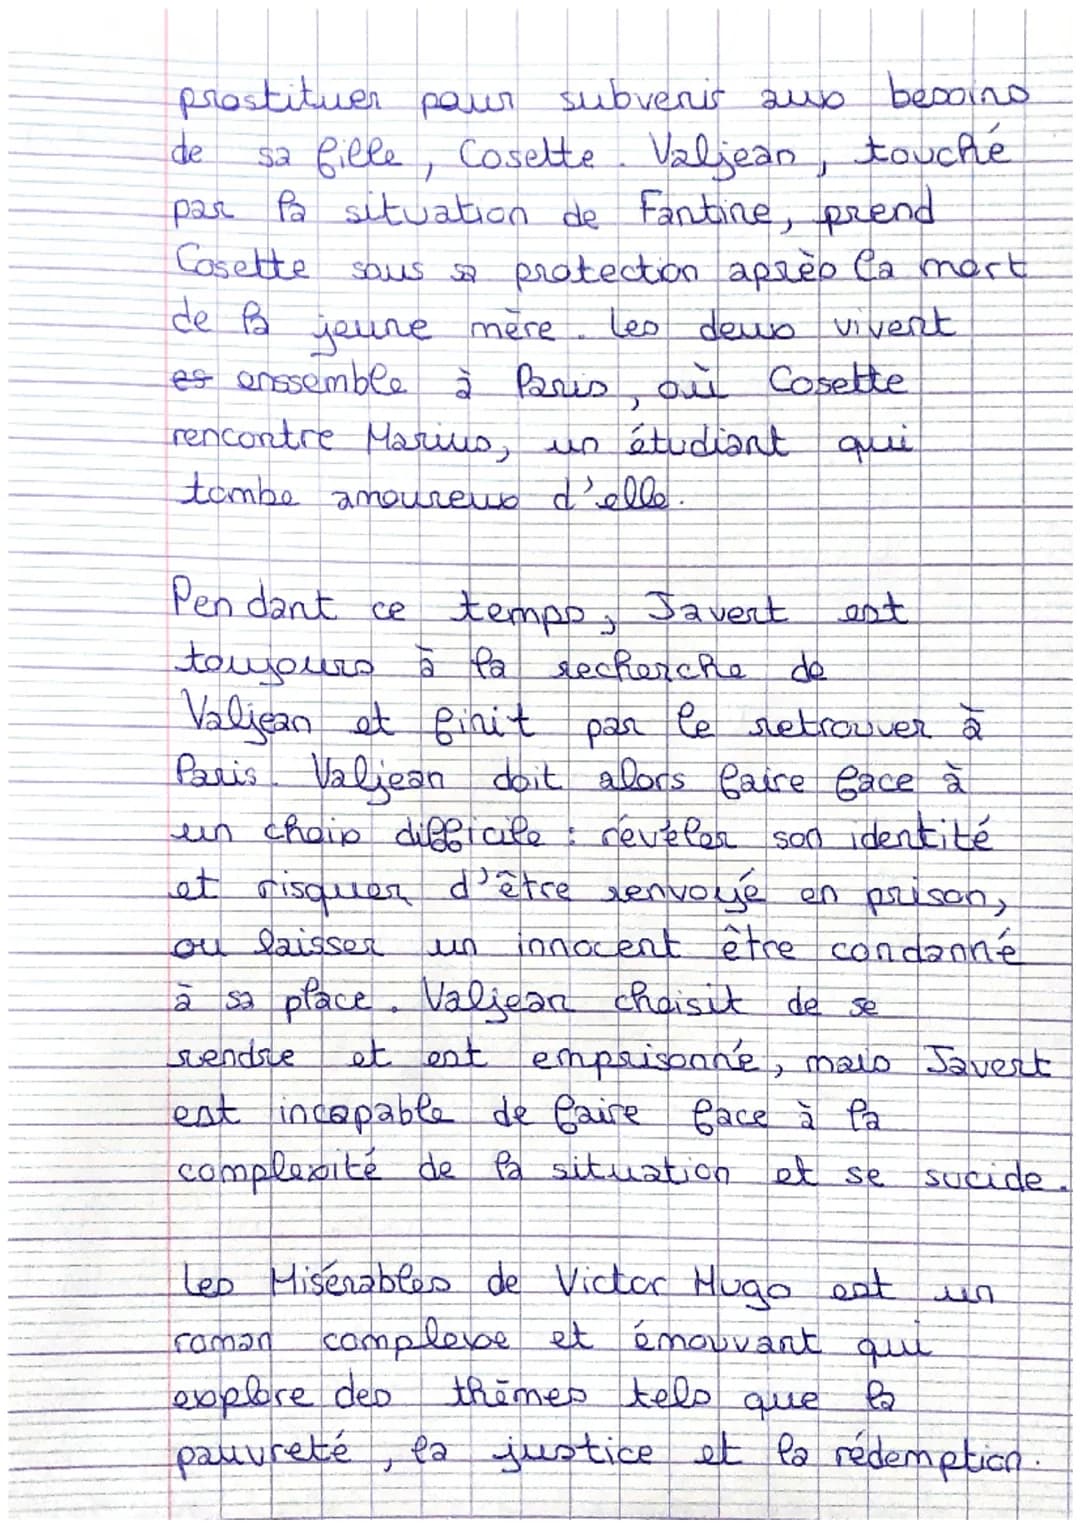 prostituer pour subvenir aux besoins
de sa fille, Cosette. Valjean, touché
par la situation de Fantine, prend
Cosette sous sa protection après la mort
de la jeune mère. Les deux vivent
es enssemble à Paris, où Cosette
rencontre Marius, un étudiant qui
tombe amoureux d'elle.
Pendant ce temps, Javert est
toujours à la recherche de
Valjean et finit par le retrouver à
Paris. Valjean doit alors faire face à
un choix difficile : révéler son identité
et risquer d'être renvoyé en prison,
ou laisser un innocent être condanné
à sa place. Valjean choisit de se
rendre et est emprisonné, mais Javert
est incapable de faire face à la
complexité de la situation et se sucide.
Les Misérables de Victor Hugo est un
roman complexe et émouvant qui
explore des thèmes tels que la
pauvreté, la justice et la rédemption.